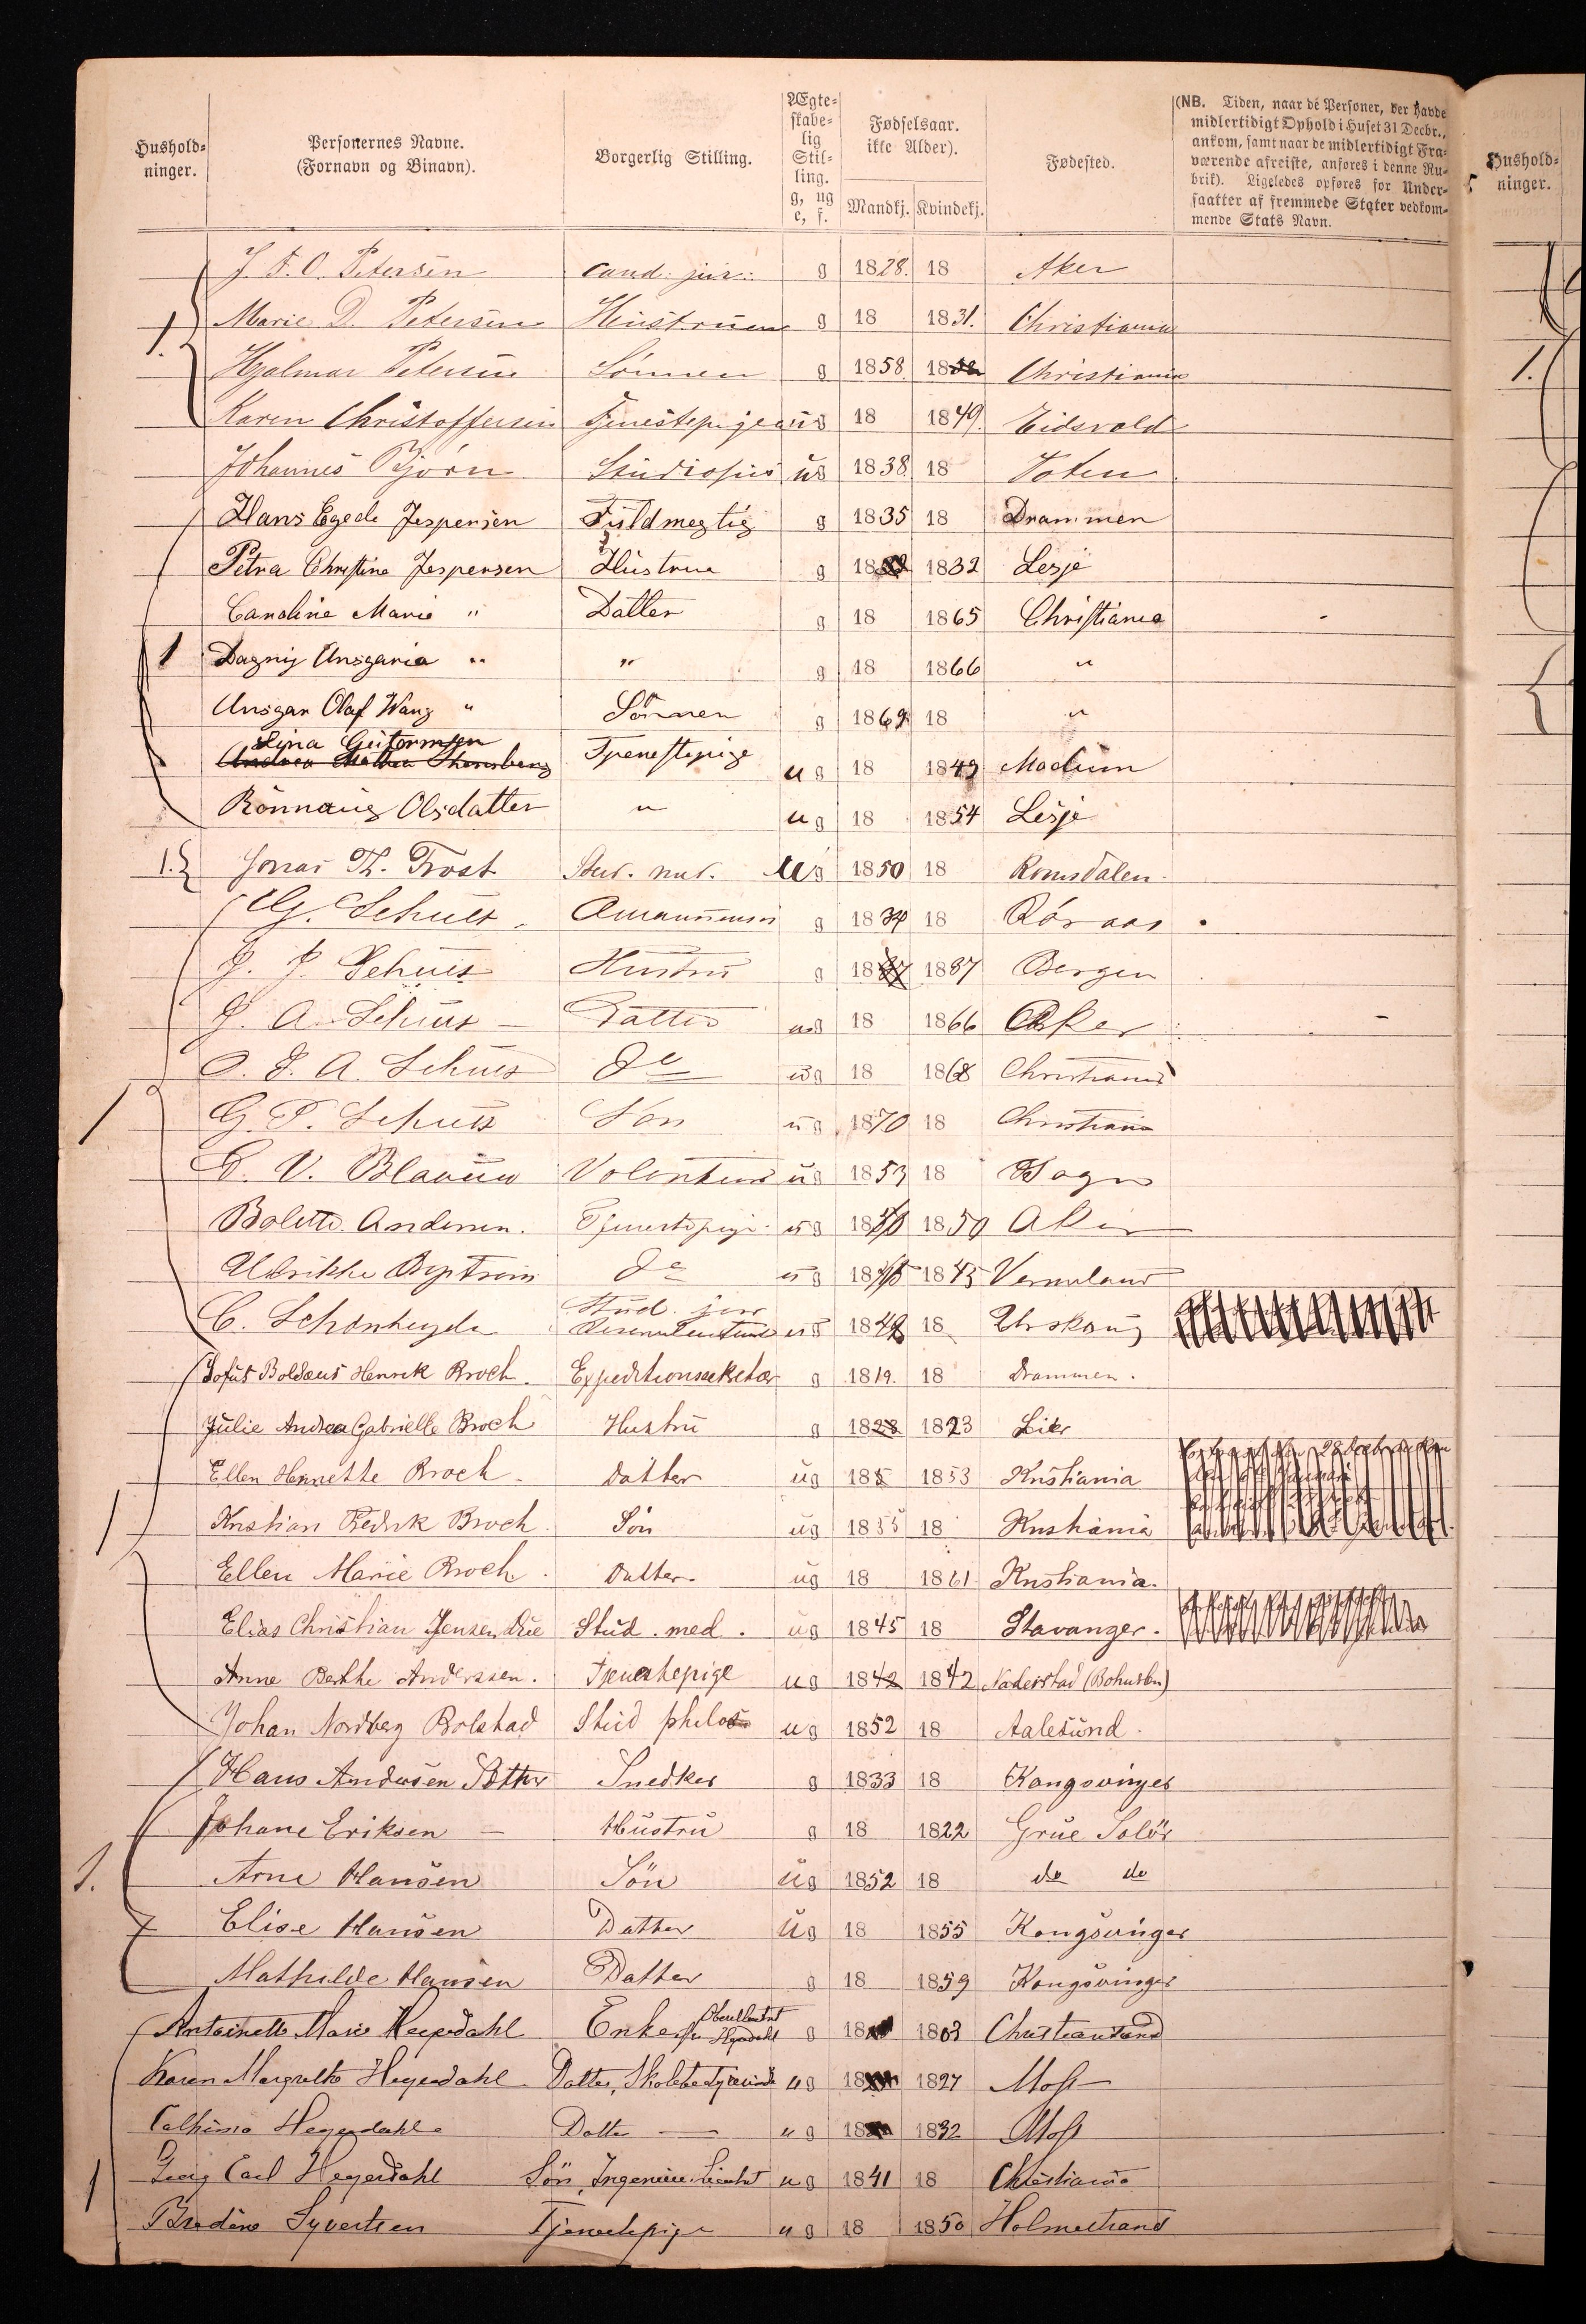 Hushold-
ninger.
Personernes Navne.
(Fornavn og Binavn).
Borgerlig Stilling.
Ægte-
skabe-
lig
Stil-
ling.
g, ug
e, f.
Fødselsaar.
ikke Alder).
Mandkj. Kvindekj.
Fødested.
(NB. Tiden, naar de Personer, der havde
midlertidigt Ophold i Huset 31 Decbr.,
ankom, samt naar de midlertidigt Fra-
værende afreiste, anføres i denne Ru-
brik). Ligeledes opføres for Under-
saatter af fremmede Stater vedkom-
mende Stats Navn.
Hushold-
ninger.
J. F. O. Petersen cand. jur. g 1828. 18 Aker
1. Marie D. Petersen Hustruen g 18 1831. Christiania
Hjalmar Petersen Sønnen g 1858 18 Christiania
Karen Christoffersen Tjenestepige ug 18 1849. Eidsvold
Johannes Bjørn Studiosus ug 1838 18 Toten
Hans Egede Jespersen Fuldmegtig g 1835 18 Drammen
Petra Christine Jespersen Hustrue g 18 1832 Lesje
Caroline Marie " Datter g 18 1865 Christiania
1 Dagny Ansgaria " " g 18 1866 "
Ansgar Olaf Wang " Sønnen g 1869 18 "
Lina Guttormsen
Tjenestepige ug 18 1849 Modum
Rønnaug Olsdatter " ug 18 1854 Lesje
1. Jonas Th. Trost Stud. ug 1850 18 Romsdalen
G. Schult Amanuensis g 1834 18 Röraas
J. J. Schult Hustru g 1837 1837 Bergen
J. A. Schult Datter ug 18 1866 Aker
J. A. Schult do ug 18 1868 Christiania
1 G. P. Schult Søn ug 1870 18 Christiania
V. Blauuw Volontair ug 1853 18 Sogn
Bolette Andersen. Tjenestepige ug 18 1850 Aker
Ulrikke Byström do ug 18 1845 Vermland
C. Schønheyder Stud. jur
ug 1848 18 Urskoug
Sofus Boldæus Henrik Broch. Expeditionssekretær g 1819. 18 Drammen.
Julie Andrea Gabrielle Broch Hustru g 1823 1823 Lier
Ellen Henriette Broch. Datter ug 185 1853 Kristiania
1 Kristian Fredrik Broch Søn ug 1855 18 Kristiania
Ellen Marie Broch Datter. ug 18 1861 Kristiania.
Elias Christian Jensen Due Stud. med. ug 1845 18 Stavanger.
Anne Berthe Anderssen. Tjenestepige ug 1842 1842 (Bohuslen)
Johan Nordberg Bolstad Stud philos ug 1852 18 Aalesund.
Hans Andersen Snedker g 1833 18 Kongsvinger
Johane Eriksen Hustru g 18 1822 Grue Solör
1. Arne Hansen Sön ug 1852 18 do do
Elise Hansen Datter ug 18 1855 Kongsvinger
Mathilde Hansen Datter g 18 1859 Kongsvinger
Antoinette Marie Heyerdahl Enke Heyerdahl g 18 1803 Christiansand
Karen Margrethe Heyerdahl Datter, ug 18 1827 Moss
Cathinca Heyerdahl Datter ug 18 1832 Moss
1 Georg Carl Heyerdahl Sön, Ingenieur ug 1841 18 Christiania
Bredine Syvertsen Tjenestepige ug 18 1850 Holmestrand
1.